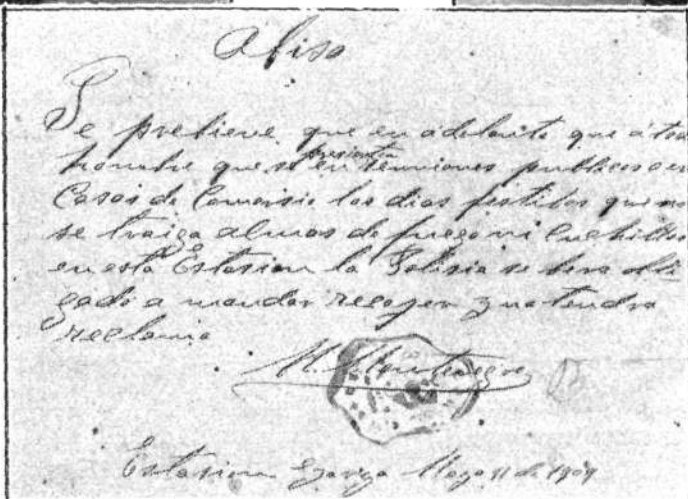 Abiso
Se prebiene que en adelante que a to
hombre que se presenta en reuniones publicas o en
Casas de Comersio los dias festibos que no
se traiga almas de fuego ni Cuchillos
en esta Estasion la Polisia se bera obli
gado a mandar recojer y no tendra
reclamo
M. Montenegro
Estasion 11 de 1909